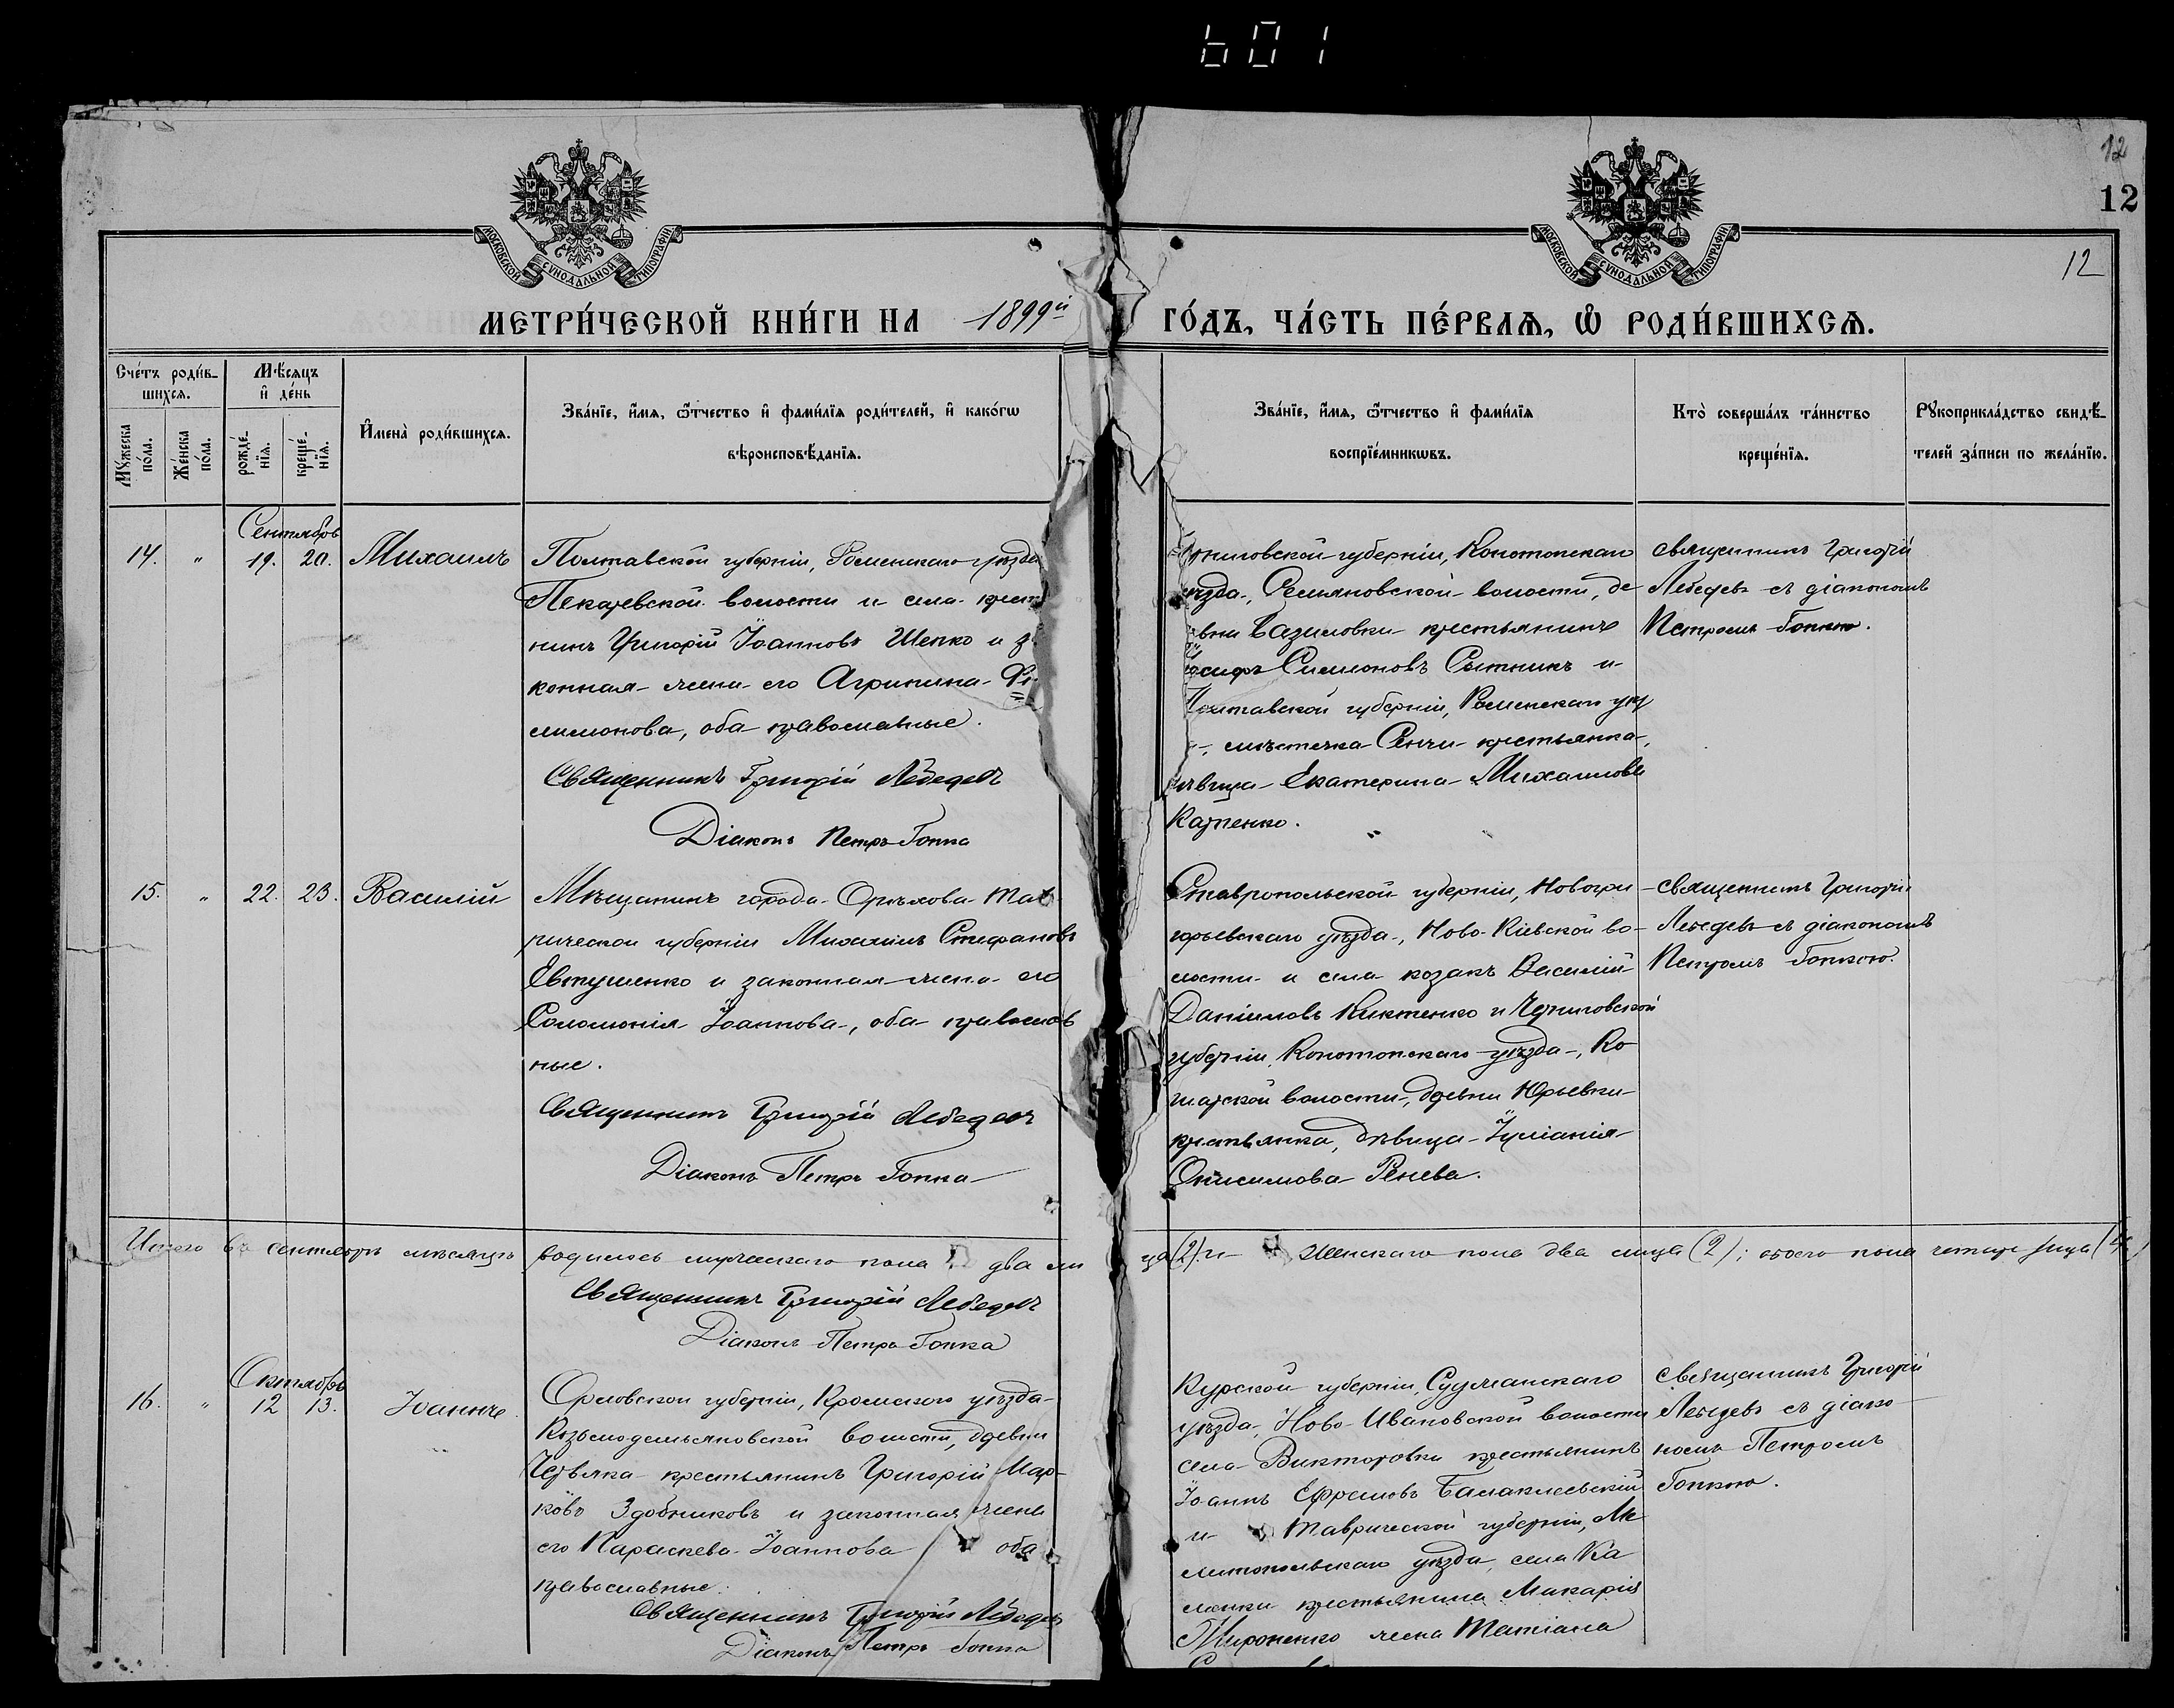 601
12
12
12
МОСКОВСКОЙ СѴНОДАЛЬНОЙ ТИПОГРАФІИ
МОСКОВСКОЙ СѴНОДАЛЬНОЙ ТИПОГРАФІИ
МЕТРИ́ЧЕСКОЙ КНИ́ГИ НА 1899й ГО́ДЪ, ЧА́СТЬ ПЕ́РВАЯ, Ѡ҆ РОДИ́ВШИХСЯ.
Сче́тъ роди́в-
шихся.
Мѹ́жеска по́ла.
Же́нска по́ла.
Мѣ́сяцъ
и҆ де́нь
рожде́-
нїя.
креще́-
нїя.
И҆мена̀ роди́вшихся.
Зва́нїе, и҆́мя, ѻ҆́тчество и҆ фами́лїя роди́телей, и҆ како́гѡ
вѣроисповѣ́данїя.
Зва́нїе, и҆́мя, ѻ҆́тчество и҆ фами́лїя
воспрїе́мникѡвъ.
Кто̀ соверша́лъ та́инство
креще́нїя.
Рѹкоприкла́дство свидѣ́-
телей за́писи по жела́нїю.
Сентябрь
14. " 19. 20. Михаилъ
Полтавской губерніи, Роменскаго уѣзда
волости и села крест
нинъ Григорій Іоанновъ Шепко и за
конная жена его Агрипина Фи
лимонова, оба православные.
Священникъ Григорій Лебедевъ
Діаконъ Петръ Гопка
рниговской губерніи, Конотопскаго
уѣзда, волости, де
вни крестьянинъ
осифъ Симоновъ Сытникъ и
Полтавской губерніи, Роменскаго уѣз
, мѣстечка крестьянка,
дѣвица Екатерина Михаилова
Карпенко.
священникъ Григорій
Лебедевъ съ діакономъ
Петромъ Гопкою.
15. " 22. 23. Василій
Мѣщанинъ города Орѣхова Тав
рической губерніи Михаилъ Стефановъ
Евтушенко и законная жена его
Соломонія Іоаннова, оба православ
ные.
Священникъ Григорій Лебедевъ
Діаконъ Петръ Гопка
Ставропольской губерніи, Новогри
горьевскаго уѣзда, Ново-Кіевской во-
лости и села козакъ Василій
Даніиловъ Киктенко и Черниговской
губерніи, Конотопскаго уѣзда, Ко
шарской волости, древни Юрьевки
крестьянка, дѣвица Іуліанія
Онисимова Ренева.
священникъ Григорій
Лебедевъ съ діакономъ
Петромъ Гопкою.
Итого въ сентябрѣ мѣсяцѣ родилось мужескаго пола два ли
ца (2) и женскаго пола два лица (2); обоего пола четыре лица (4)
Священникъ Григорій Лебедевъ
Діаконъ Петръ Гопка
Октябрь
16. " 12 13. Іоаннъ
Орловской губерніи, Кромского уѣзда
Козьмодемьяновской волости, древни
Червяка крестьянинъ Григорій Мар-
ковъ Здобниковъ и законная жена
его Параскева Іоаннова оба
православные.
Священникъ Григорій Лебедевъ
Діаконъ Петръ Гопка
Курской губерніи, Суджанскаго
уѣзда, Ново-Ивановской волости
села Викторовки крестьянинъ
Іоаннъ Ефремовъ Балаклеевскій
и Таврической губерніи, Ме
литопольскаго уѣзда, села Ка
менки крестьянина Макарія
Мироненко жена Татіана
священникъ Григорій
Лебедевъ съ діако-
номъ Петромъ
Гопкою.